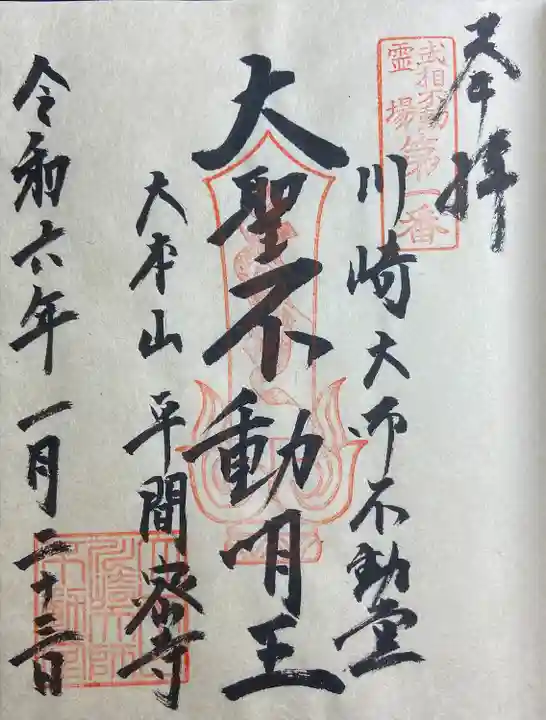 奉拝
武相不動
霊場
第一番
川崎大师不動堂
大聖不動明王
大本山 平間密寺
令和六年一月二十三日